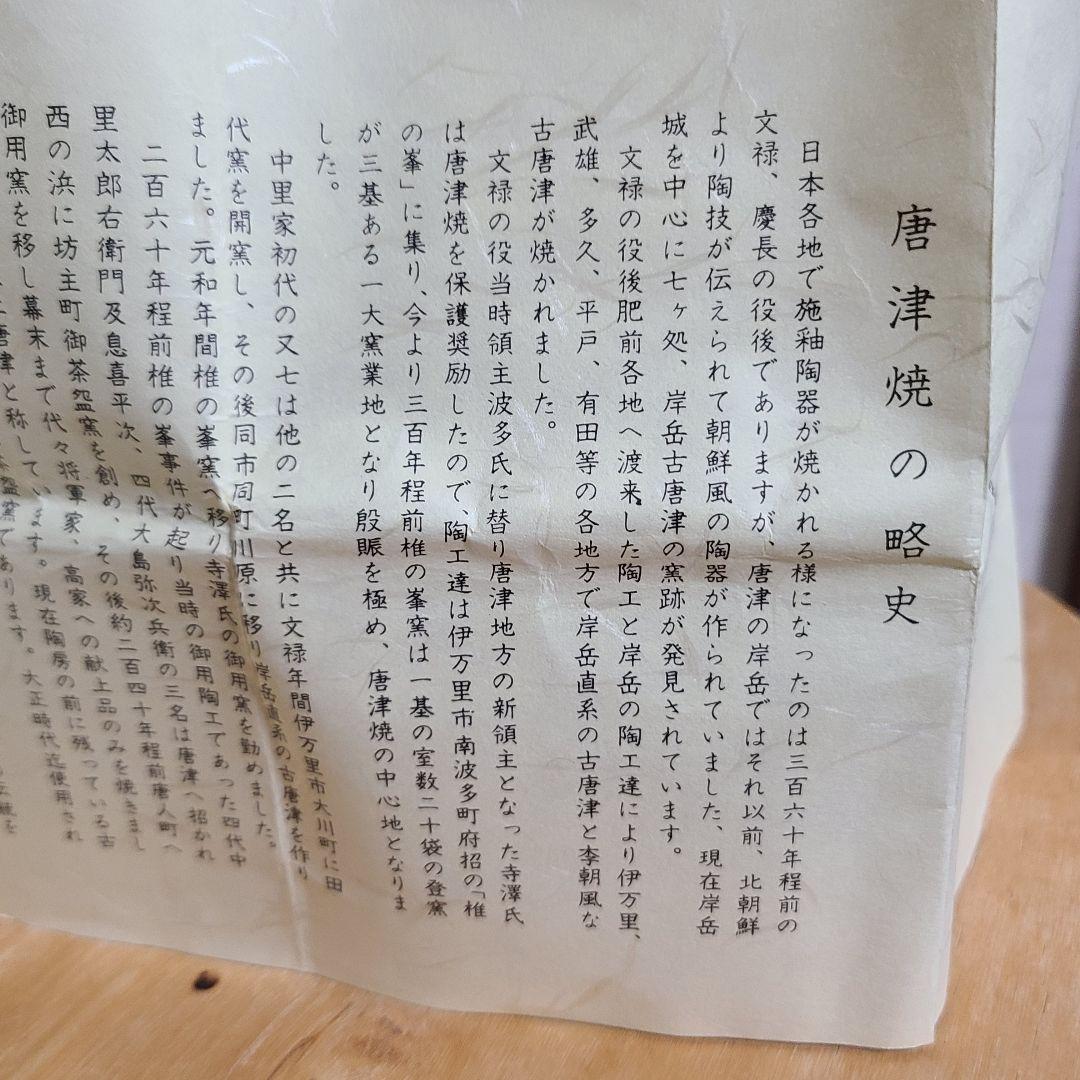 唐津焼の略史
日本各地で施釉陶器が焼かれる様になったのは三百六十年程前の
文禄、慶長の役後でありますが、唐津の岸岳ではそれ以前、北朝鮮
より陶技が伝えられて朝鮮風の陶器が作られていました、現在岸岳
城を中心に七ヶ処、岸岳古唐津の窯跡が発見されています。
文禄の役後肥前各地へ渡来した陶工と岸岳の陶工達により伊万里、
武雄、多久、平戸、有田等の各地方で岸岳直系の古唐津と李朝風な
古唐津が焼かれました。
文禄の役当時領主波多氏に替り唐津地方の新領主となった寺澤氏
は唐津焼を保護奨励したので、陶工達は伊万里市南波多町府招の「椎
の峯」に集り、今より三百年程前椎の峯窯は一基の室数二十袋の登窯
が三基ある一大窯業地となり殷賑を極め、唐津焼の中心地となりま
した。
中里家初代の又七は他の二名と共に文禄年間伊万里市大川町に田
代窯を開窯し、その後同市同町川原に移り岸岳直系の古唐津を作り
ました。元和年間椎の峯窯へ移り寺澤氏の御用窯を勤めました。
二百六十年程前椎の峯事件が起り当時の御用陶工であった四代中
里太郎右衛門及息喜平次、四代大島弥次兵衛の三名は唐津へ招かれ
西の浜に坊主町御茶盌窯を創め、その後約二百四十年程前唐人町へ
御用窯を移し幕末まで代々将軍家、高家への献上品のみを焼きまし
唐津と称しています。現在陶房の前に残っている古
茶盌窯であります。大正時代迄使用され